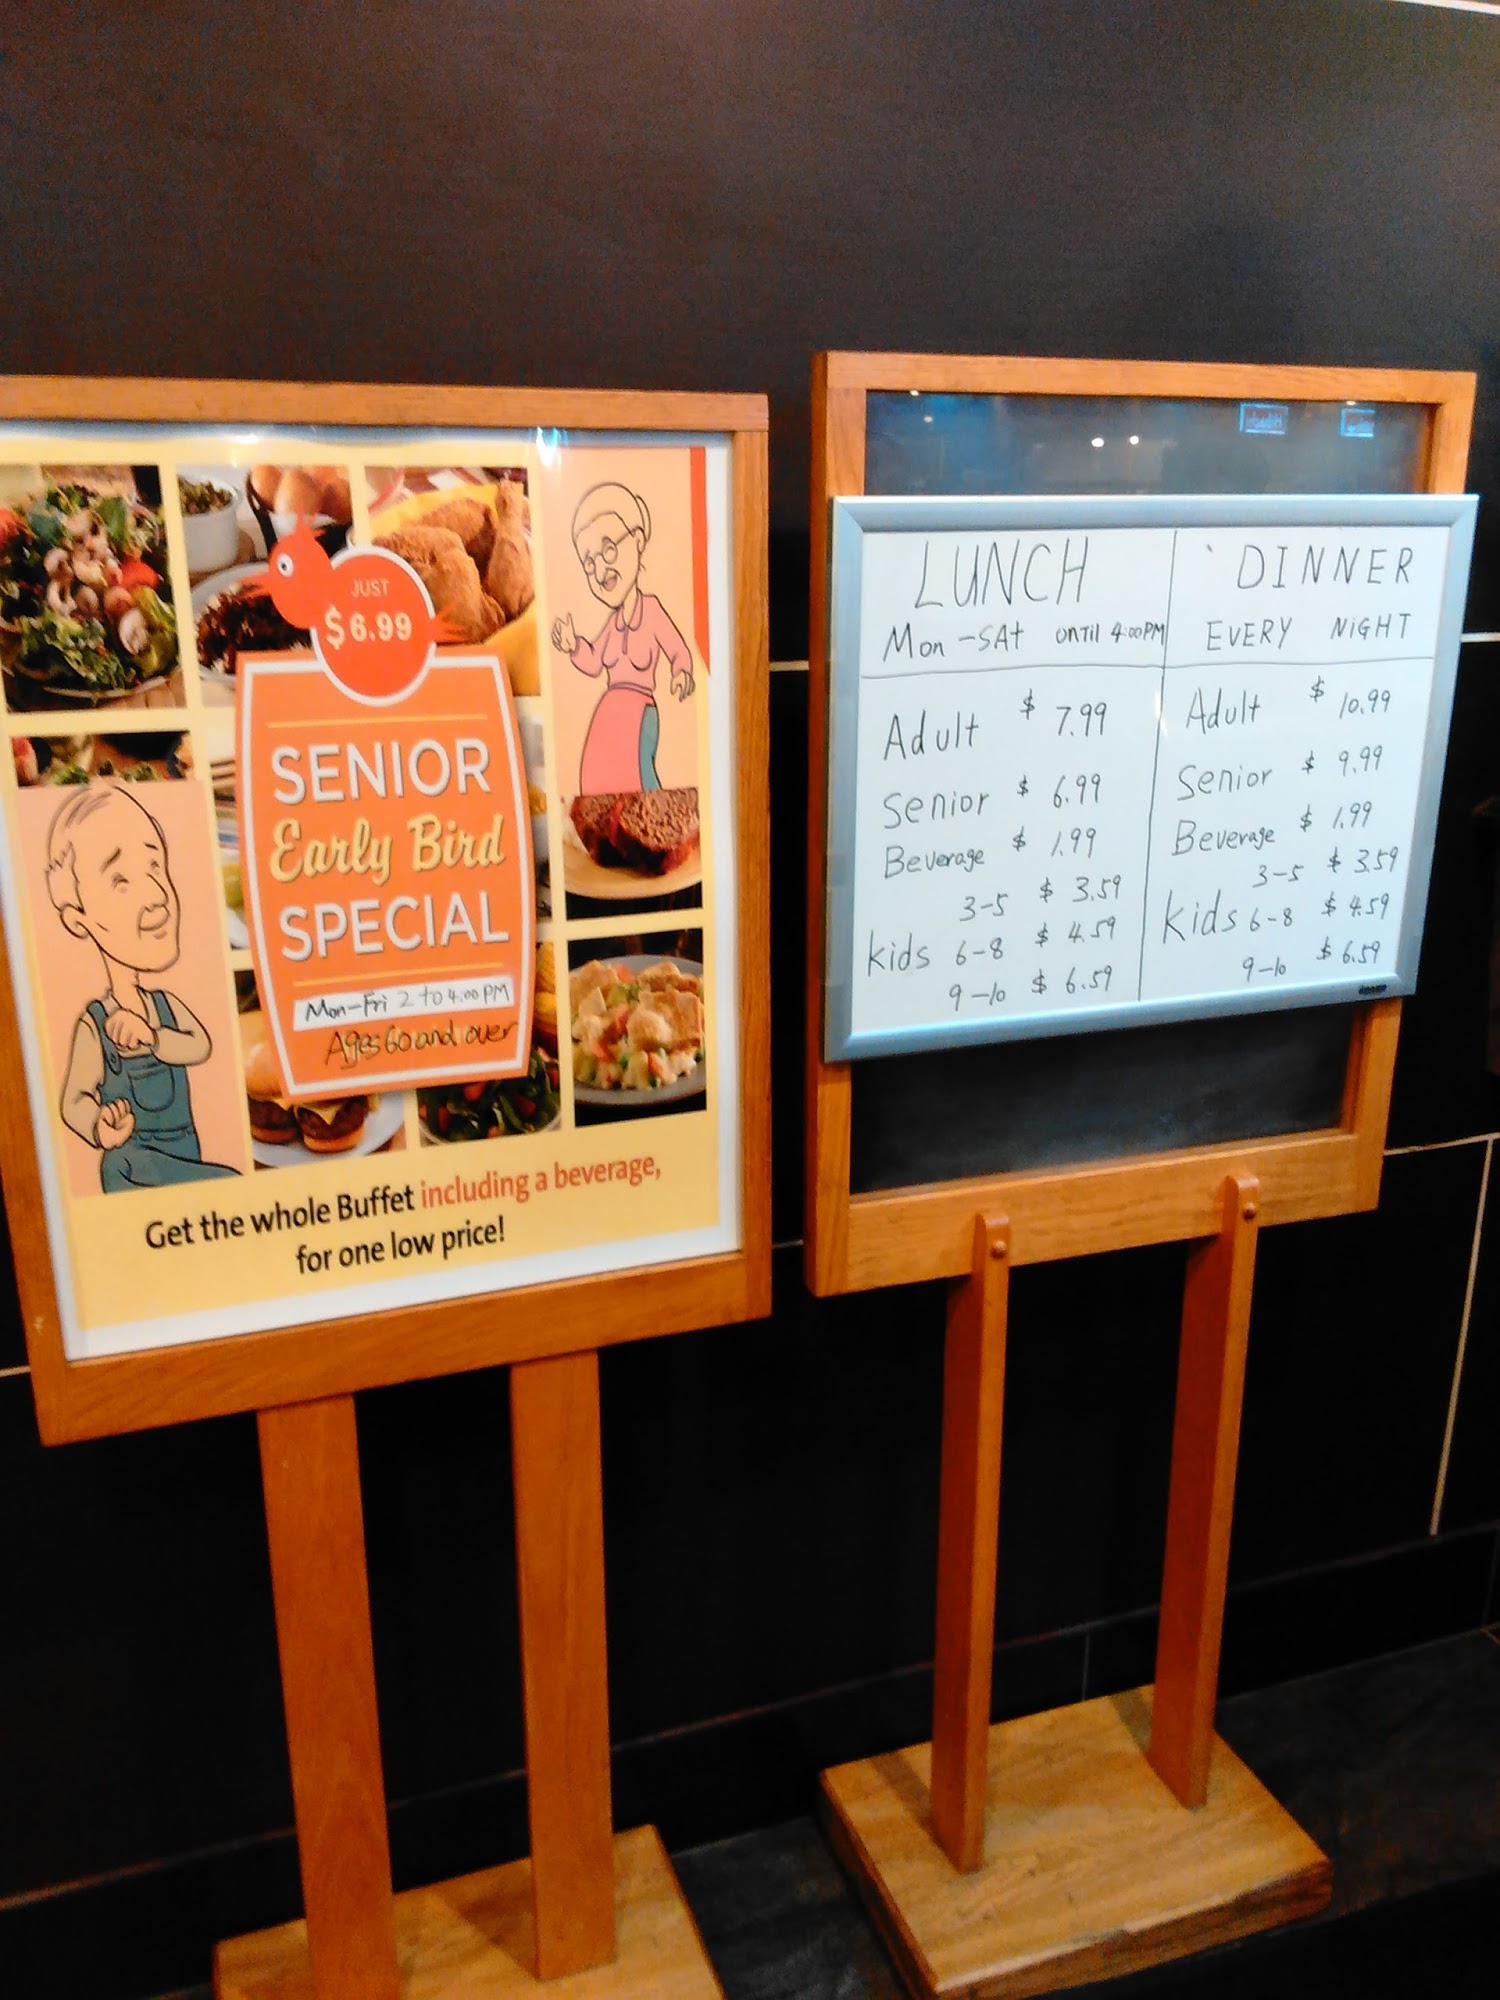 JUST
$6.99
SENIOR
Early Bird
SPECIAL
Mon-Fri 2 to 4.00 PM
Ages 60 and over
Get the whole Buffet including a beverage,
for one low price!
LUNCH
Mon-SAt UNTIL 4:00PM
Adult $ 7.99
Senior $ 6.99
Beverage $ 1.99
3-5 $ 3.59
Kids 6-8 $ 4.59
9-10 $ 6.59
DINNER
EVERY NiGHT
Adult $ 10.99
Senior $ 9.99
Beverage $ 1.99
3-5 $ 3.59
Kids 6-8 $ 4.59
9-10 $ 6.59